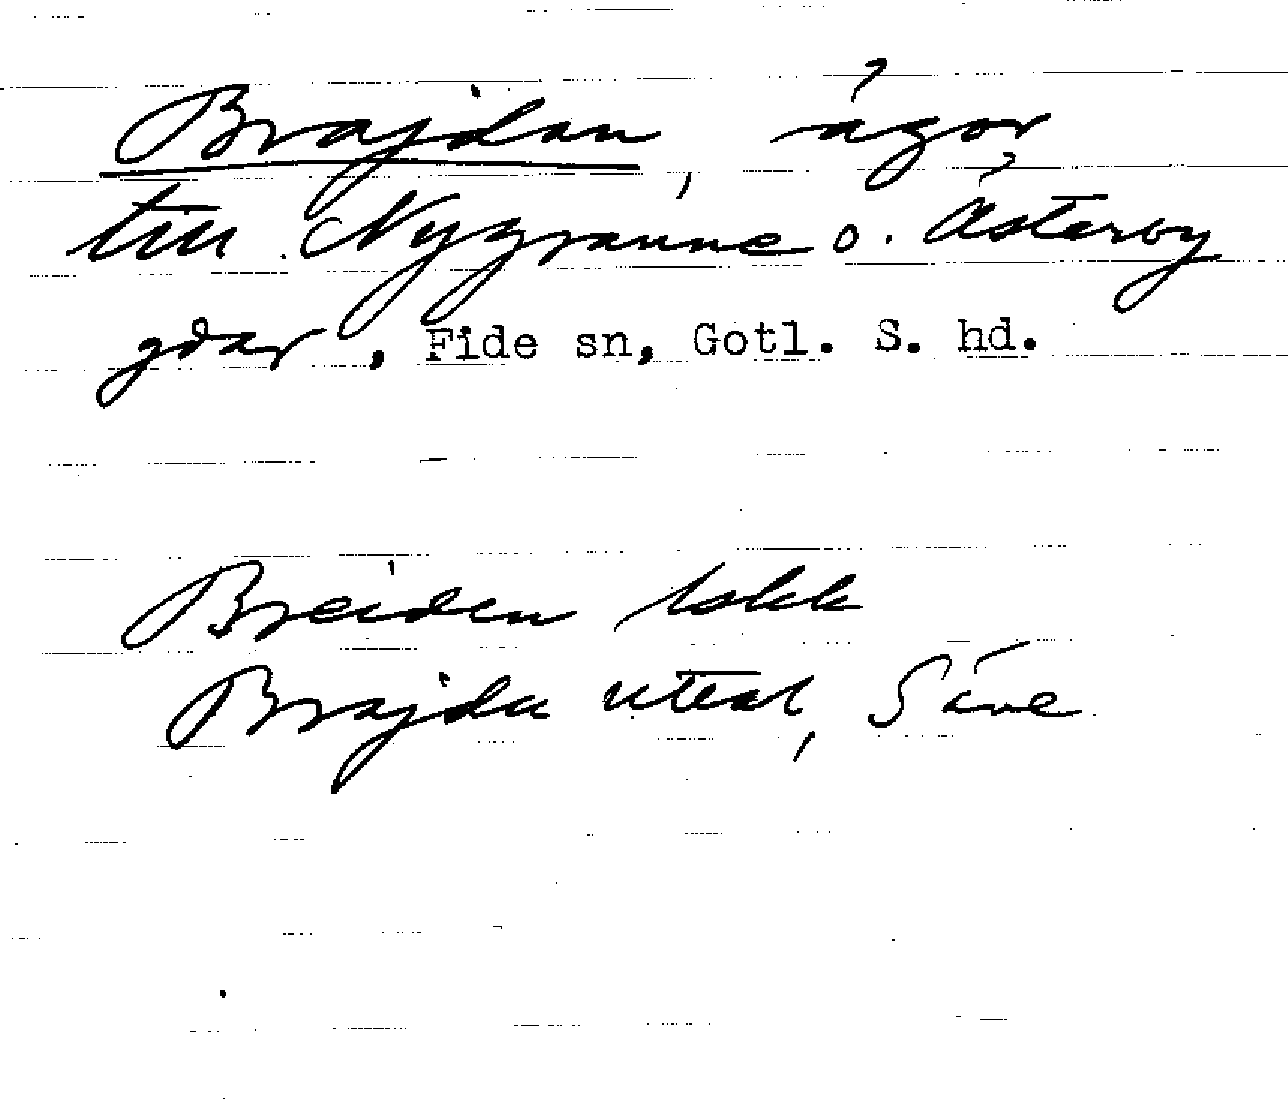 Brajdan, ågor
till Nygranne o. Österby
gdar, Fide sn, Gotl. S. hd.
Breiden lokk
Brajdu uttal, Säve